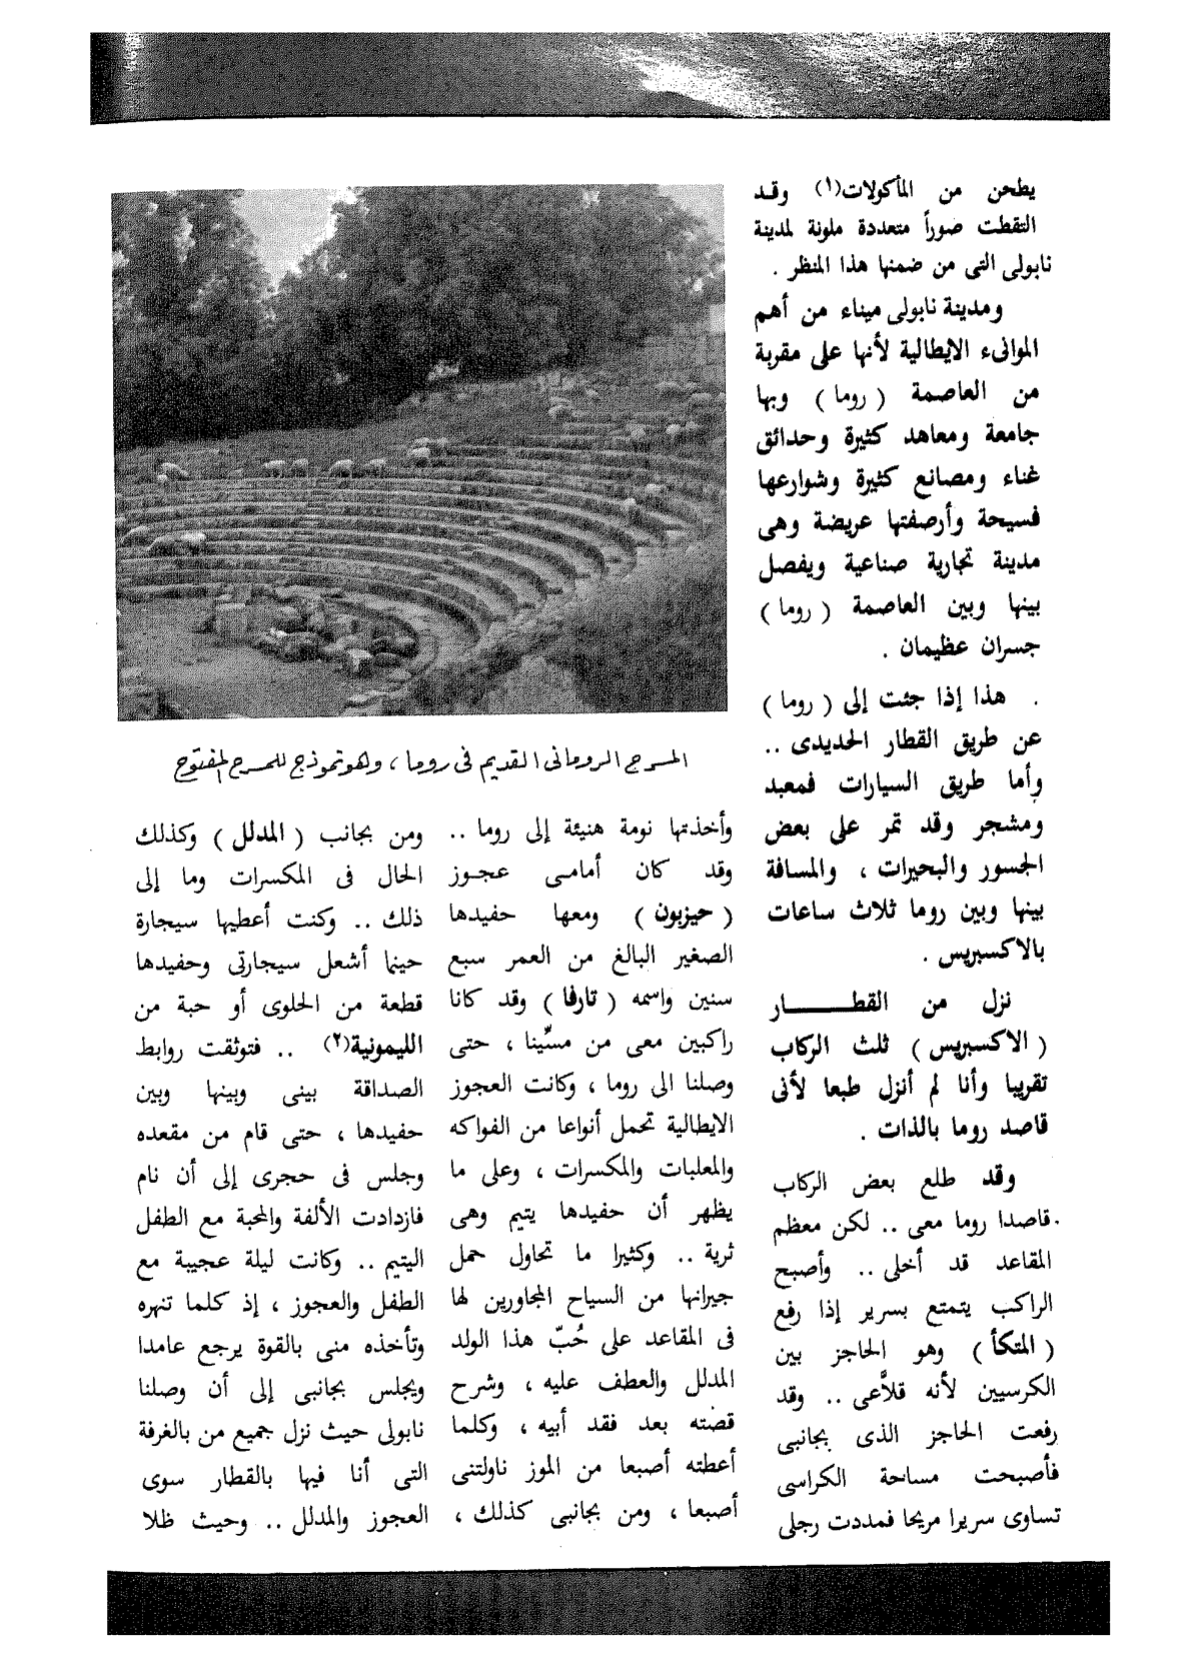 يطحن من المأكولات(١) وقد
التقطت صوراً متعددة ملونة لمدينة
نابولى التى من ضمنها هذا المنظر .
ومدينة نابولى ميناء من أهم
الموانىء الايطالية لأنها على مقربة
من العاصمة ( روما ) وبها
جامعة ومعاهد كثيرة وحدائق
غناء ومصانع كثيرة وشوارعها
فسيحة وأرصفتها عريضة وهى
مدينة تجارية صناعية ويفصل
بينها وبين العاصمة ( روما )
جسران عظيمان .
هذا إذا جئت إلى ( روما )
عن طريق القطار الحديدى ..
وأما طريق السيارات فمعبد
ومشجر وقد تمر على بعض
الجسور والبحيرات ، والمسافة
بينها وبين روما ثلاث ساعات
بالاكسبريس .
نزل من القطــــــار
( الاكسبريس ) ثلث الركاب
تقريبا وأنا لم أنزل طبعا لأنى
قاصد روما بالذات .
وقد طلع بعض الركاب
قاصدا روما معى .. لكن معظم
المقاعد قد أخلى .. وأصبح
الراكب يتمتع بسرير إذا رفع
( المتكأ ) وهو الحاجز بين
الكرسيين لأنه قلاَّعى .. وقد
رفعت الحاجز الذى بجانبى
فأصبحت مساحة الكراسى
تساوى سريرا مريحا فمددت رجلى
المسرح الرومانى القديم فى روما ، وهو نموذج للمسرح المفتوح
وأخذتها نومة هنيئة إلى روما ..
وقد كان أمامى عجوز
( حيزبون ) ومعها حفيدها
الصغير البالغ من العمر سبع
سنين واسمه ( تارفا ) وقد كانا
راكبين معى من مسِّينا ، حتى
وصلنا الى روما ، وكانت العجوز
الايطالية تحمل أنواعا من الفواكه
والمعلبات والمكسرات ، وعلى ما
يظهر أن حفيدها يتيم وهى
ثرية .. وكثيرا ما تحاول حمل
جيرانها من السياح المجاورين لها
فى المقاعد على حُبّ هذا الولد
المدلل والعطف عليه ، وشرح
قصته بعد فقد أبيه ، وكلما
أعطته أصبعا من الموز ناولتنى
أصبعا ، ومن بجانبى كذلك ،
ومن بجانب ( المدلل ) وكذلك
الحال فى المكسرات وما إلى
ذلك .. وكنت أعطيها سيجارة
حينما أشعل سيجارتى وحفيدها
قطعة من الحلوى أو حبة من
الليمونية(٢) .. فتوثقت روابط
الصداقة بينى وبينها وبين
حفيدها ، حتى قام من مقعده
وجلس فى حجرى إلى أن نام
فازدادت الألفة والمحبة مع الطفل
اليتيم .. وكانت ليلة عجيبة مع
الطفل والعجوز ، إذ كلما تنهره
وتأخذه منى بالقوة يرجع عامدا
ويجلس بجانبى إلى أن وصلنا
نابولى حيث نزل جميع من بالغرفة
التى أنا فيها بالقطار سوى
العجوز والمدلل .. وحيث ظلا